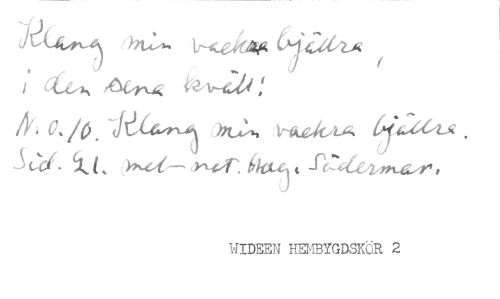 Klang min vackra bjällra,
i den sena kväll!
N.o.10. Klang min vackra bjällra.
Sid. 21. met-not. Hag. Söderman.
WIDEEN HEMBYGDSKÖR 2